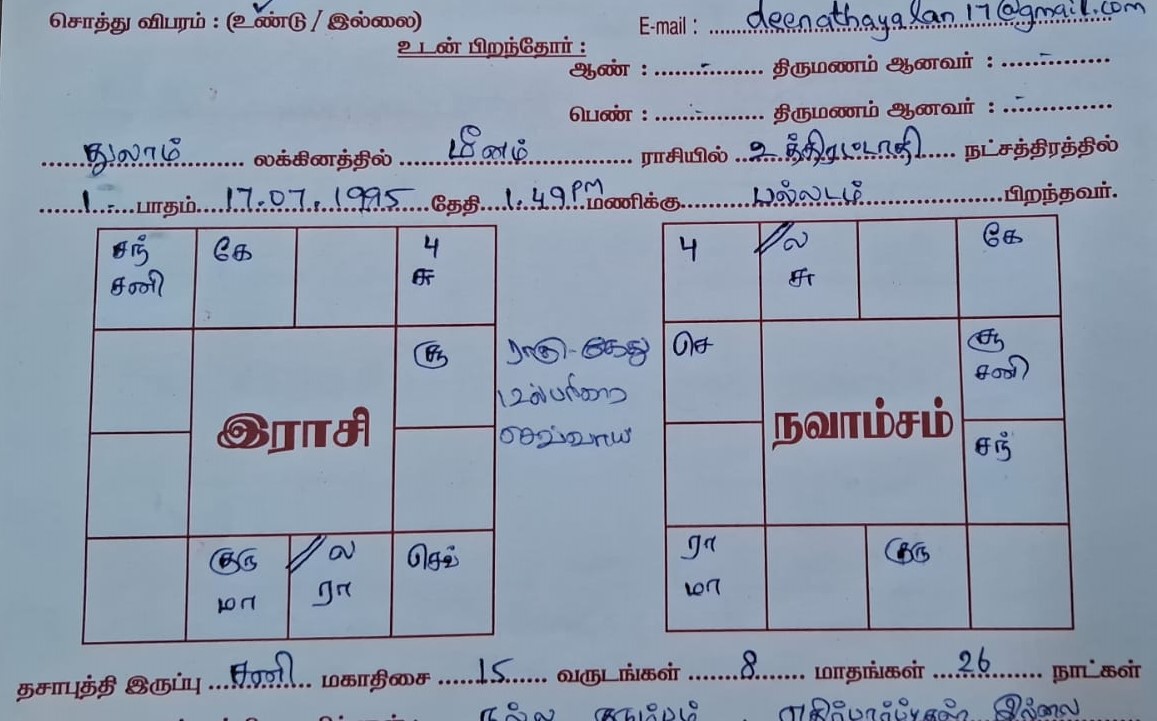 சொத்து விபரம் : (உண்டு / இல்லை)
E-mail : deenathayalan17@gmail.com
உடன் பிறந்தோர் :
ஆண் : ........-........ திருமணம் ஆனவர் : .....-.........
பெண் : ........-........ திருமணம் ஆனவர் : ..-............
துலாம் லக்கினத்தில் மீனம் ராசியில் உத்திரட்டாதி நட்சத்திரத்தில்
1 - பாதம் 17.07.1995 தேதி 1.49 PM மணிக்கு பல்லடம் பிறந்தவர்.
சந் கே பு
சனி சு
சூ
இராசி
குரு ல செவ்
மா ரா
ராகு-கேது
செவ்வாய்
பு ல கே
சு
செ சூ
சனி
நவாம்சம்
சந்
ரா குரு
மா
தசாபுத்தி இருப்பு சனி மகாதிசை 15 வருடங்கள் 8 மாதங்கள் 26 நாட்கள்
நல்ல குடும்பம் எதிர்பார்ப்புகள் இல்லை